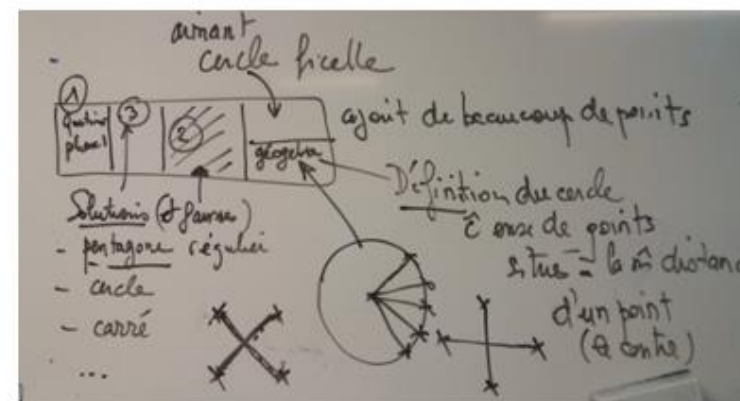 aimant
cercle ficelle
①
③
②
phase 1
géogebra
ajout de beaucoup de points
Solutions (et fausses)
- pentagone régulier
- cercle
- carré
...
Définition du cercle
ens de points
situés = la m̂ distance
d'un point
(centre)